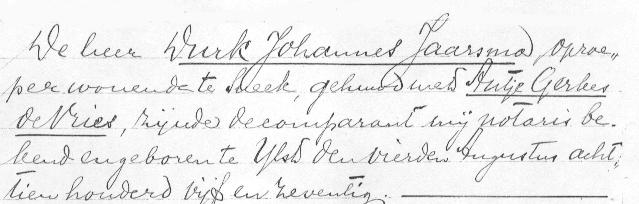 De heer Durk Johannes Jaarsma, oproe„
per wonende te Sneek, gehuwd met Antje Gerkes
de Vries, zijnde de comparant mij notaris be-
kend en geboren te Ylst den vierden Augustus acht„
tien honderd vijf en zeventig.